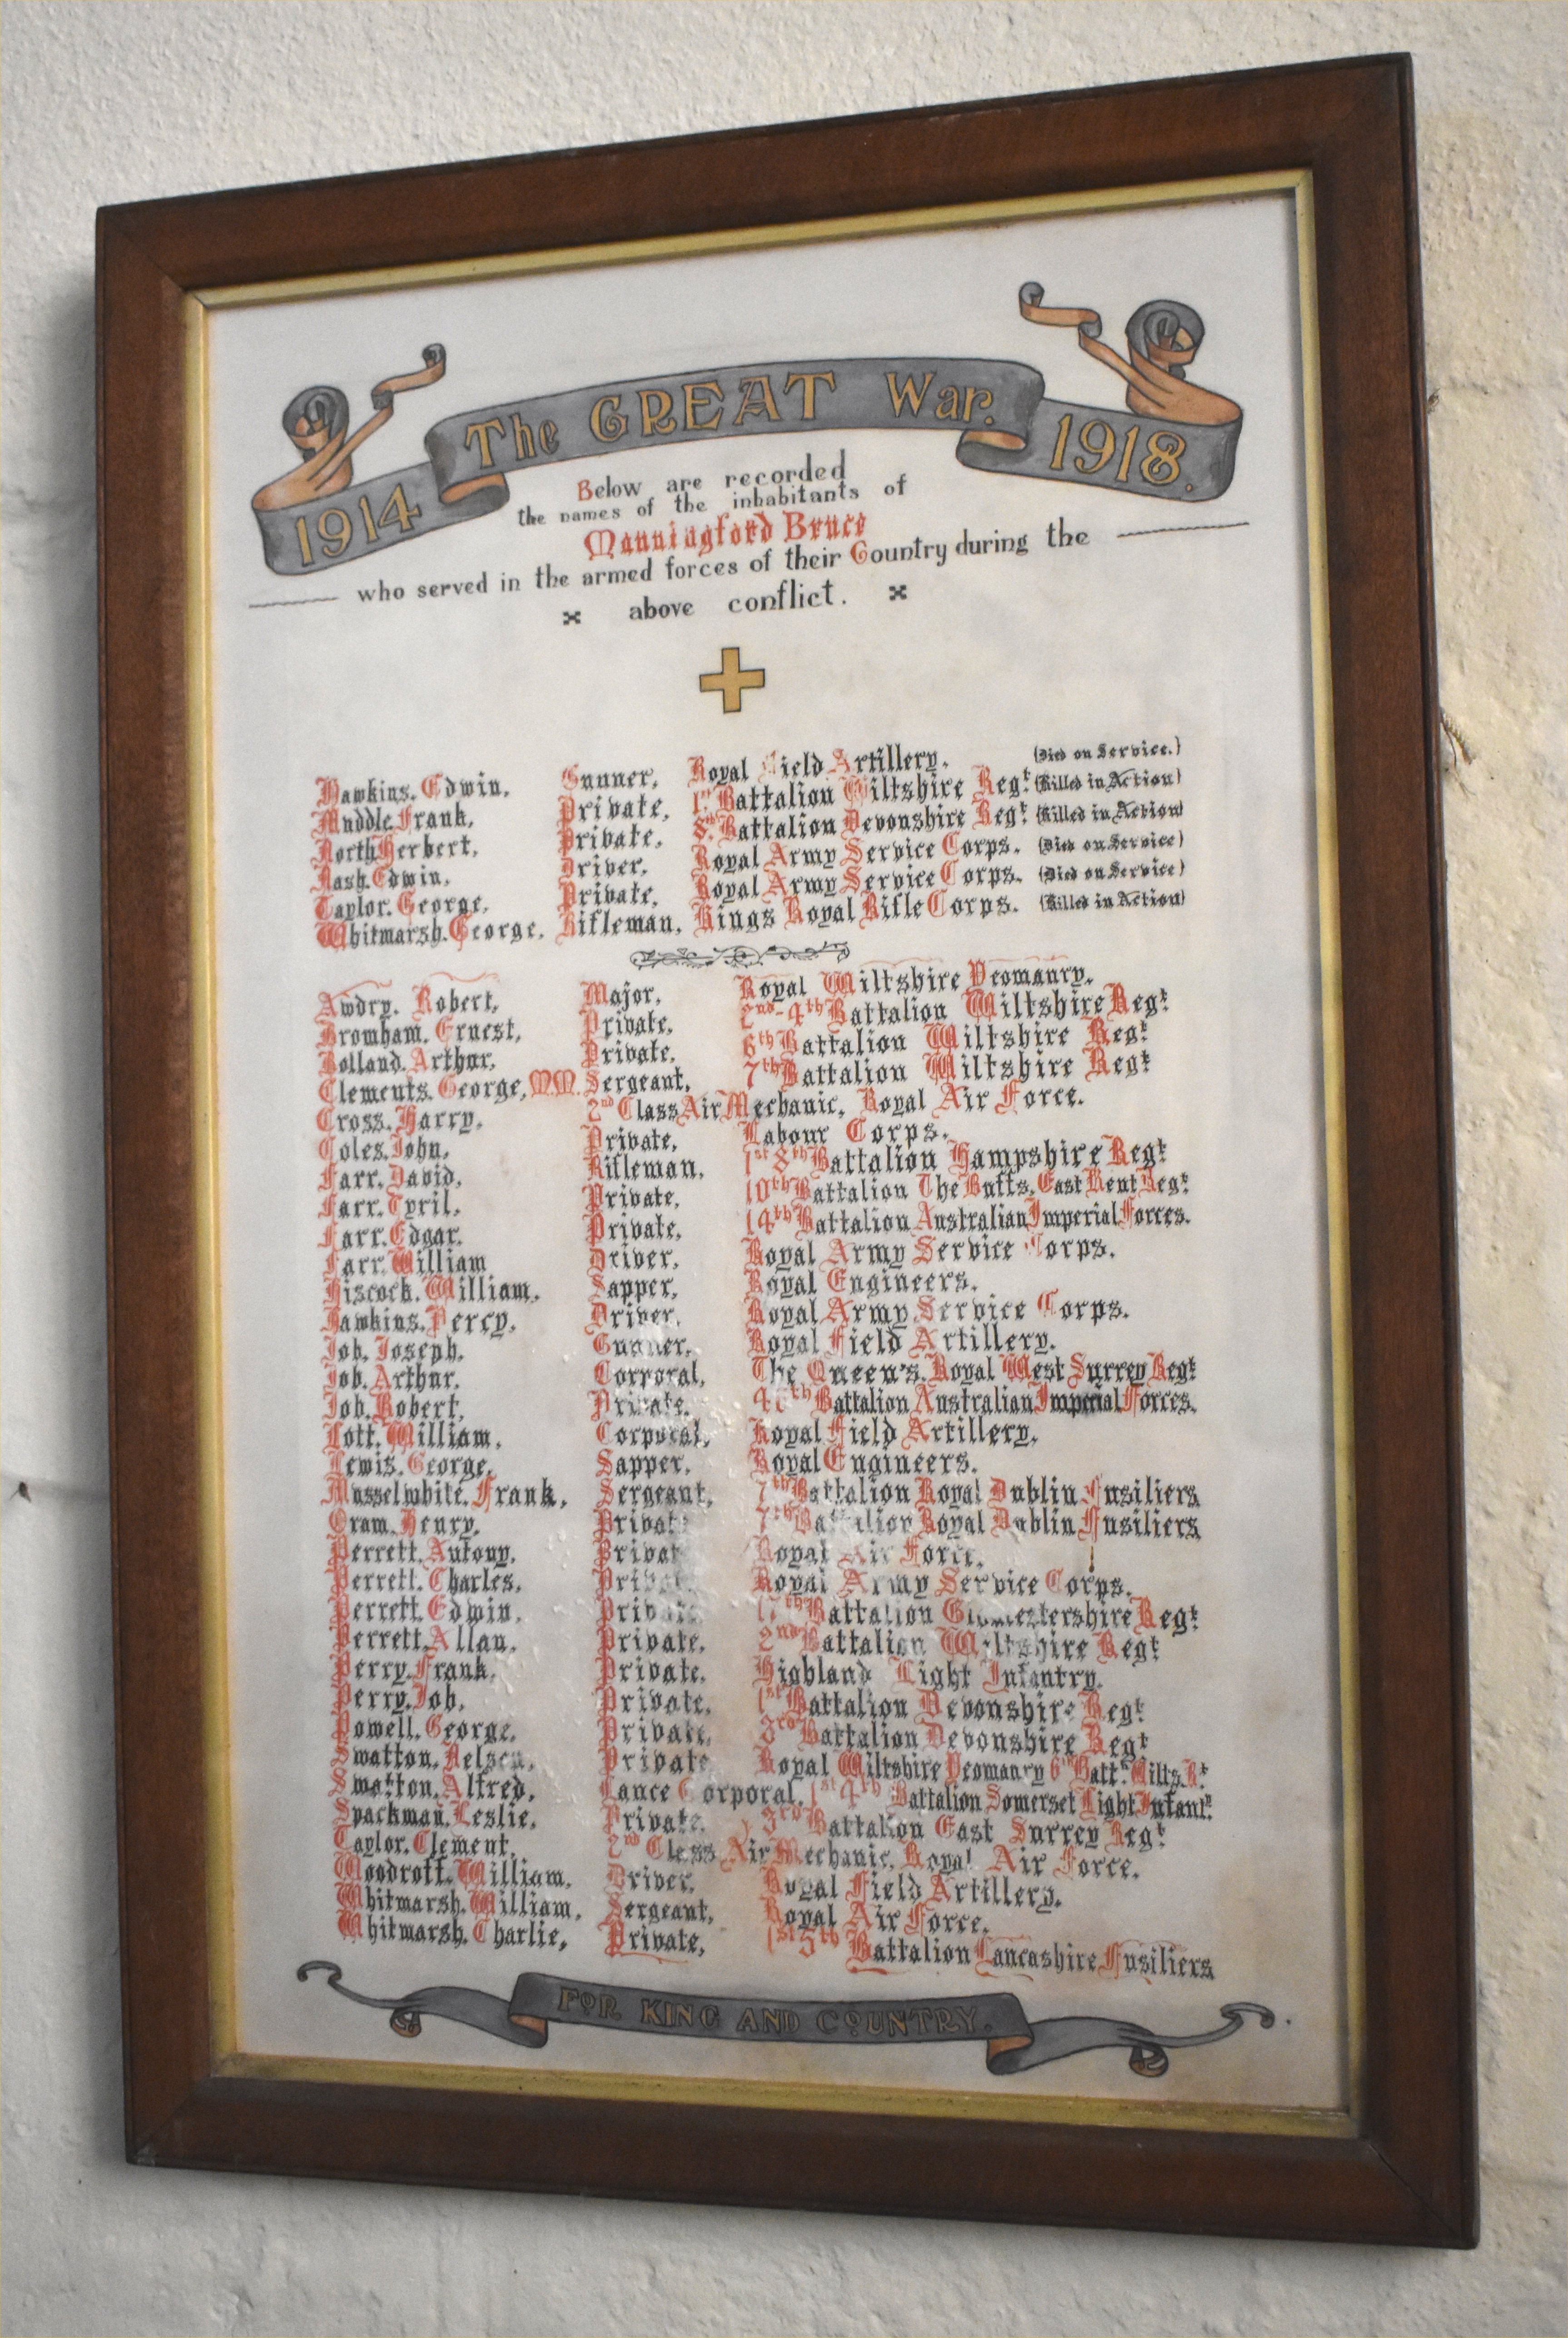 1914 The GREAT War. 1918.
Below are recorded
the names of the inhabitants of
Manningford Bruce
who served in the armed forces of their Country during the
above conflict.
Hawkins. Edwin, Gunner, Royal Field Artillery. (Died on Service.)
Muddle. Frank, Private, 1st Battalion Wiltshire Regt. (Killed in Action)
North Herbert, Private, 8th Battalion Devonshire Regt. (Killed in Action)
Nash. Edwin, Driver, Royal Army Service Corps. (Died on Service)
Taylor. George, Private, Royal Army Service Corps. (Died on Service)
Whitmarsh. George, Rifleman, Kings Royal Rifle Corps. (Killed in Action)
Awdry. Robert, Major, Royal Wiltshire Yeomanry.
Bromham. Ernest, Private, 2nd-4th Battalion Wiltshire Regt
Bolland. Arthur, Private, 6th Battalion Wiltshire Regt
Clements. George, M.M. Sergeant, 7th Battalion Wiltshire Regt
Cross. Harry, 2nd Class Air Mechanic, Royal Air Force.
Coles. John, Private, Labour Corps.
Farr. David, Rifleman, 1st 8th Battalion Hampshire Regt
Farr. Cyril, Private, 10th Battalion The Buffs, East Kent Regt
Farr. Edgar. Private, 14th Battalion Australian Imperial Forces.
Farr. William Driver, Royal Army Service Corps.
Hiscock. William, Sapper, Royal Engineers.
Hawkins. Percy, Driver, Royal Army Service Corps.
Job. Joseph. Gunner, Royal Field Artillery.
Job. Arthur. Corporal, The Queen's. Royal West Surrey Regt
Job. Robert, Private, Battalion Australian Imperial Forces.
Lott. William, Corporal, Royal Field Artillery.
Lewis. George, Sapper, Royal Engineers.
Musselwhite. Frank, Sergeant, 7th Battalion Royal Dublin Fusiliers
Oram. Henry, Private 7th Battalion Royal Dublin Fusiliers
Perrett. Antony, Private Royal Air Force.
Perrett. Charles, Private Royal Army Service Corps.
Perrett. Edwin, Private Battalion Gloucestershire Regt
Perrett. Allan, Private, 2nd Battalion Wiltshire Regt
Perry. Frank, Private, Highland Light Infantry.
Perry. Job, Private, 1st Battalion Devonshire Regt
Powell. George, Private, 3rd Battalion Devonshire Regt
Swatton. Nelson, Private Royal Wiltshire Yeomanry 6th Battn Wilts. Rt
Swatton. Alfred, Lance Corporal, 1st 4th Battalion Somerset Light Infant.
Spackman. Leslie, Private, 3rd Battalion East Surrey Regt
Taylor. Clement, 2nd Class Air Mechanic, Royal Air Force.
Woodroff. William, Driver, Royal Field Artillery.
Whitmarsh. William, Sergeant, Royal Air Force.
Whitmarsh. Charlie, Private, 1st 5th Battalion Lancashire Fusiliers
FOR KING AND COUNTRY.